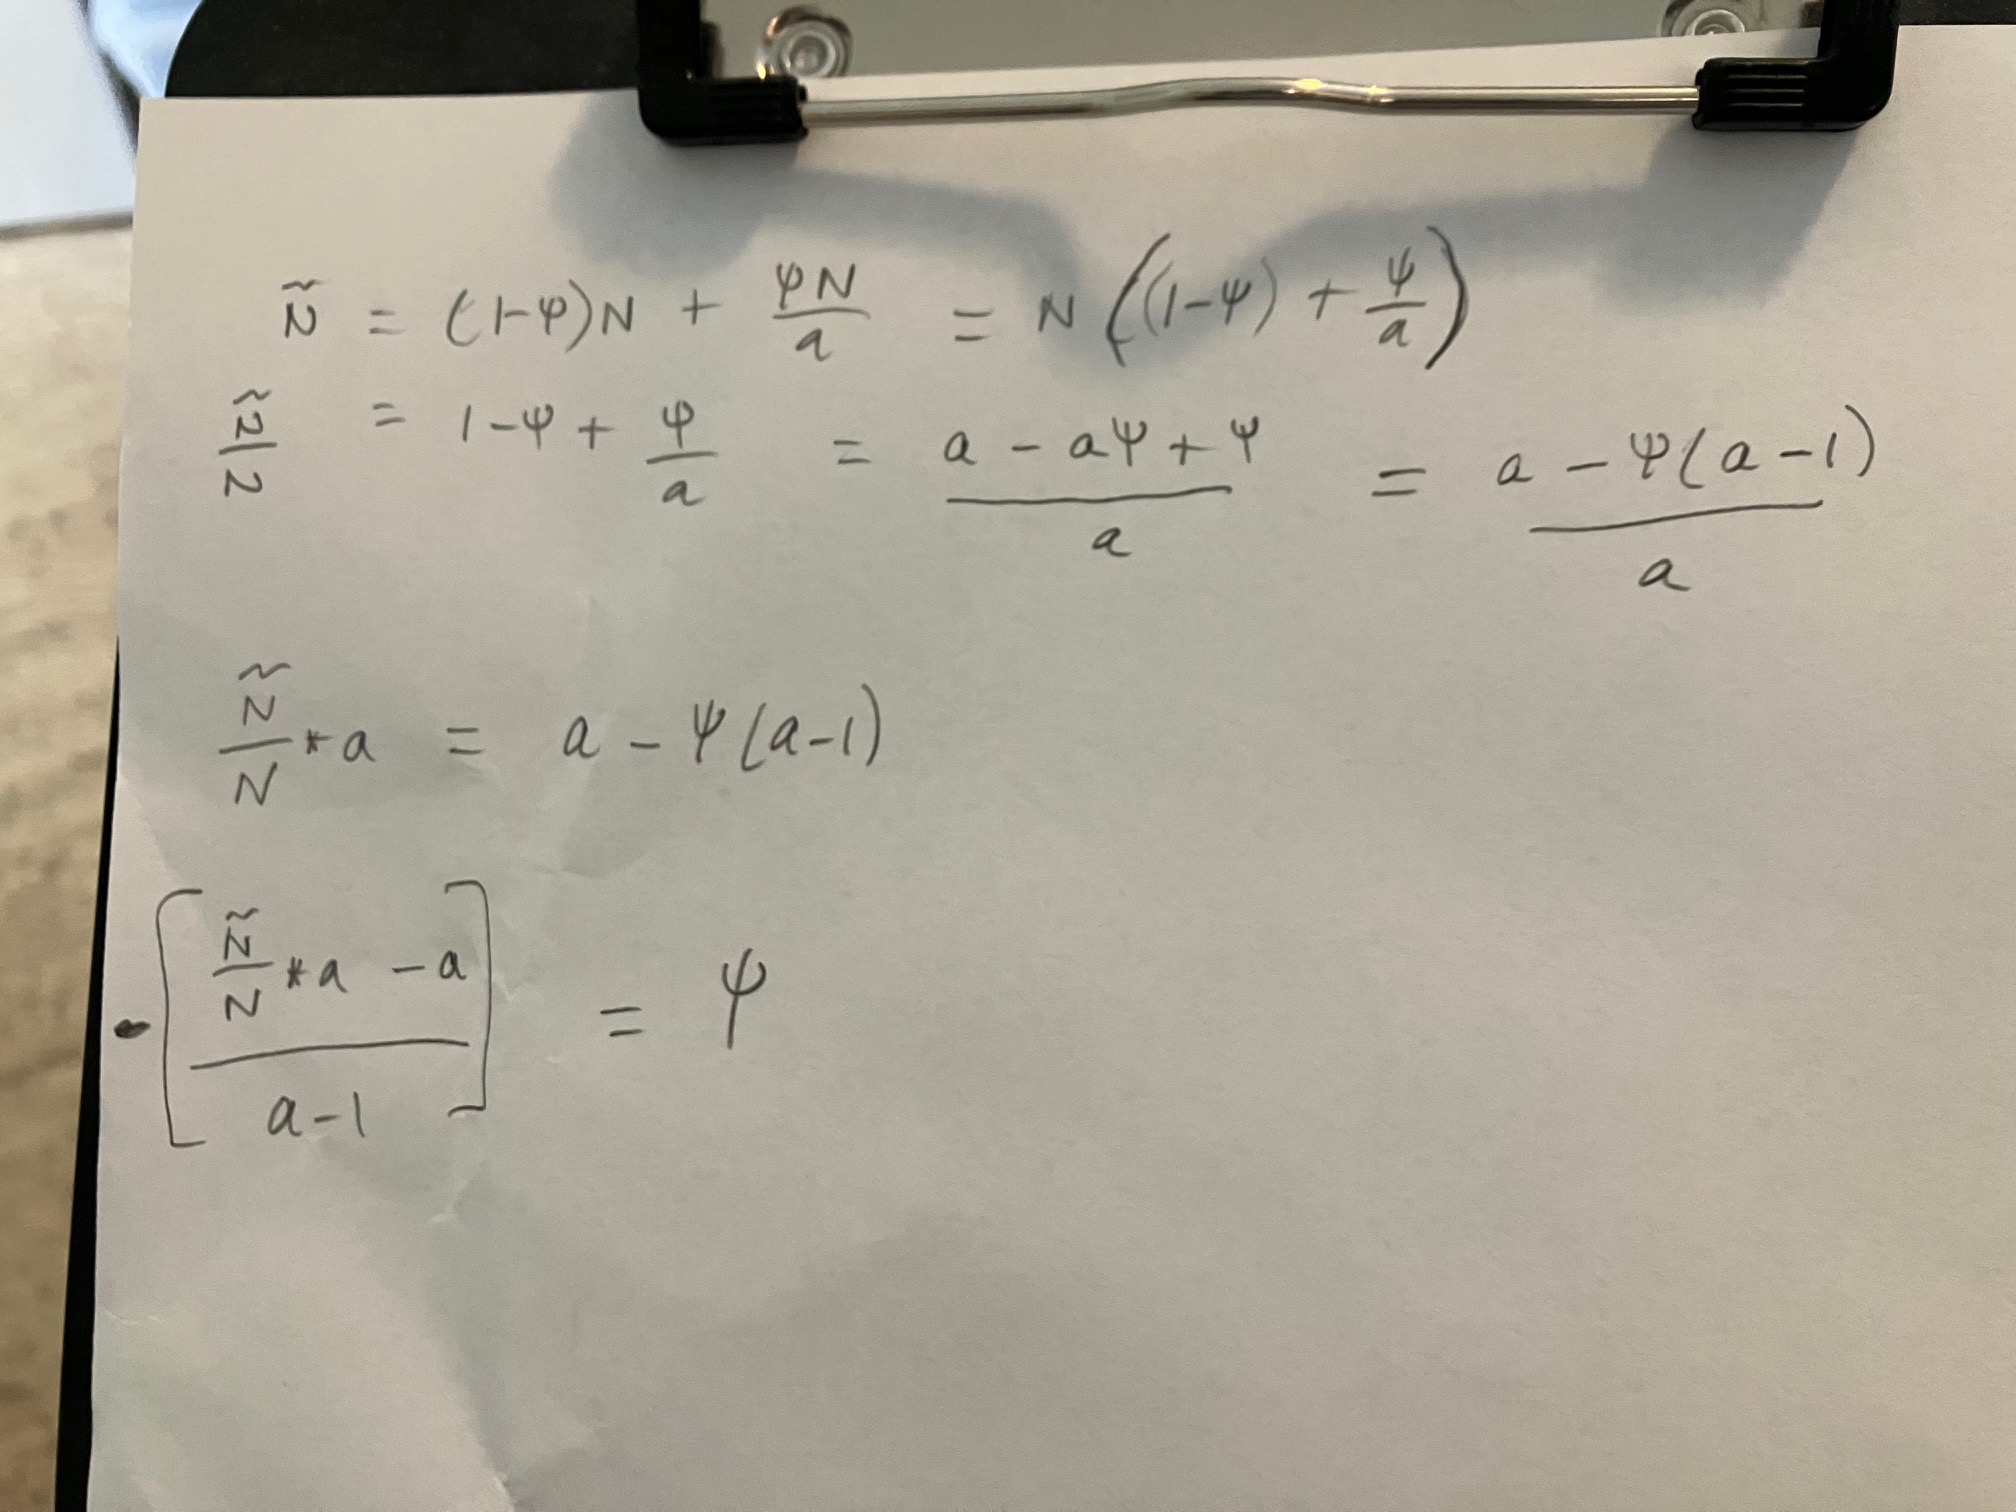 Ñ = (1-ψ)N + ψN/a = N((1-ψ) + ψ/a)
Ñ/N = 1-ψ + ψ/a = (a - aψ + ψ)/a = (a - ψ(a-1))/a
Ñ/N * a = a - ψ(a-1)
-[(Ñ/N * a - a)/(a-1)] = ψ